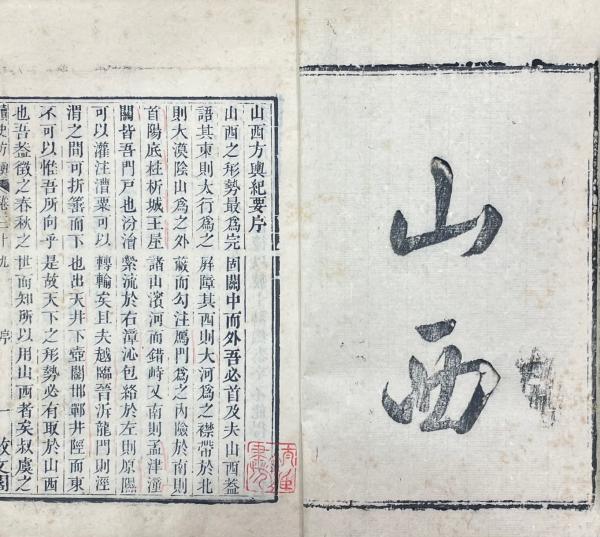 山西
山西方輿紀要序
山西之形勢最爲完固關中而外吾必首及夫山西蓋
語其東則太行爲之屏障其西則大河爲之襟帶於北
則大漠陰山爲之外蔽而勾注鴈門爲之內險於南則
首陽底柱析城王屋諸山濱河而錯峙又南則孟津潼
關皆吾門戶也汾澮縈流於右漳沁包絡於左則原隰
可以灌注漕粟可以轉輸矣且夫越臨晉泝龍門則涇
渭之間可折箠而下也出天井下壺關邯鄲井陘而東
不可以惟吾所向乎是故天下之形勢必有取於山西
也吾蓋徵之春秋之世而知所以用山西者矣叔虞之
讀史方輿 卷三十九 序 一 敷文閣